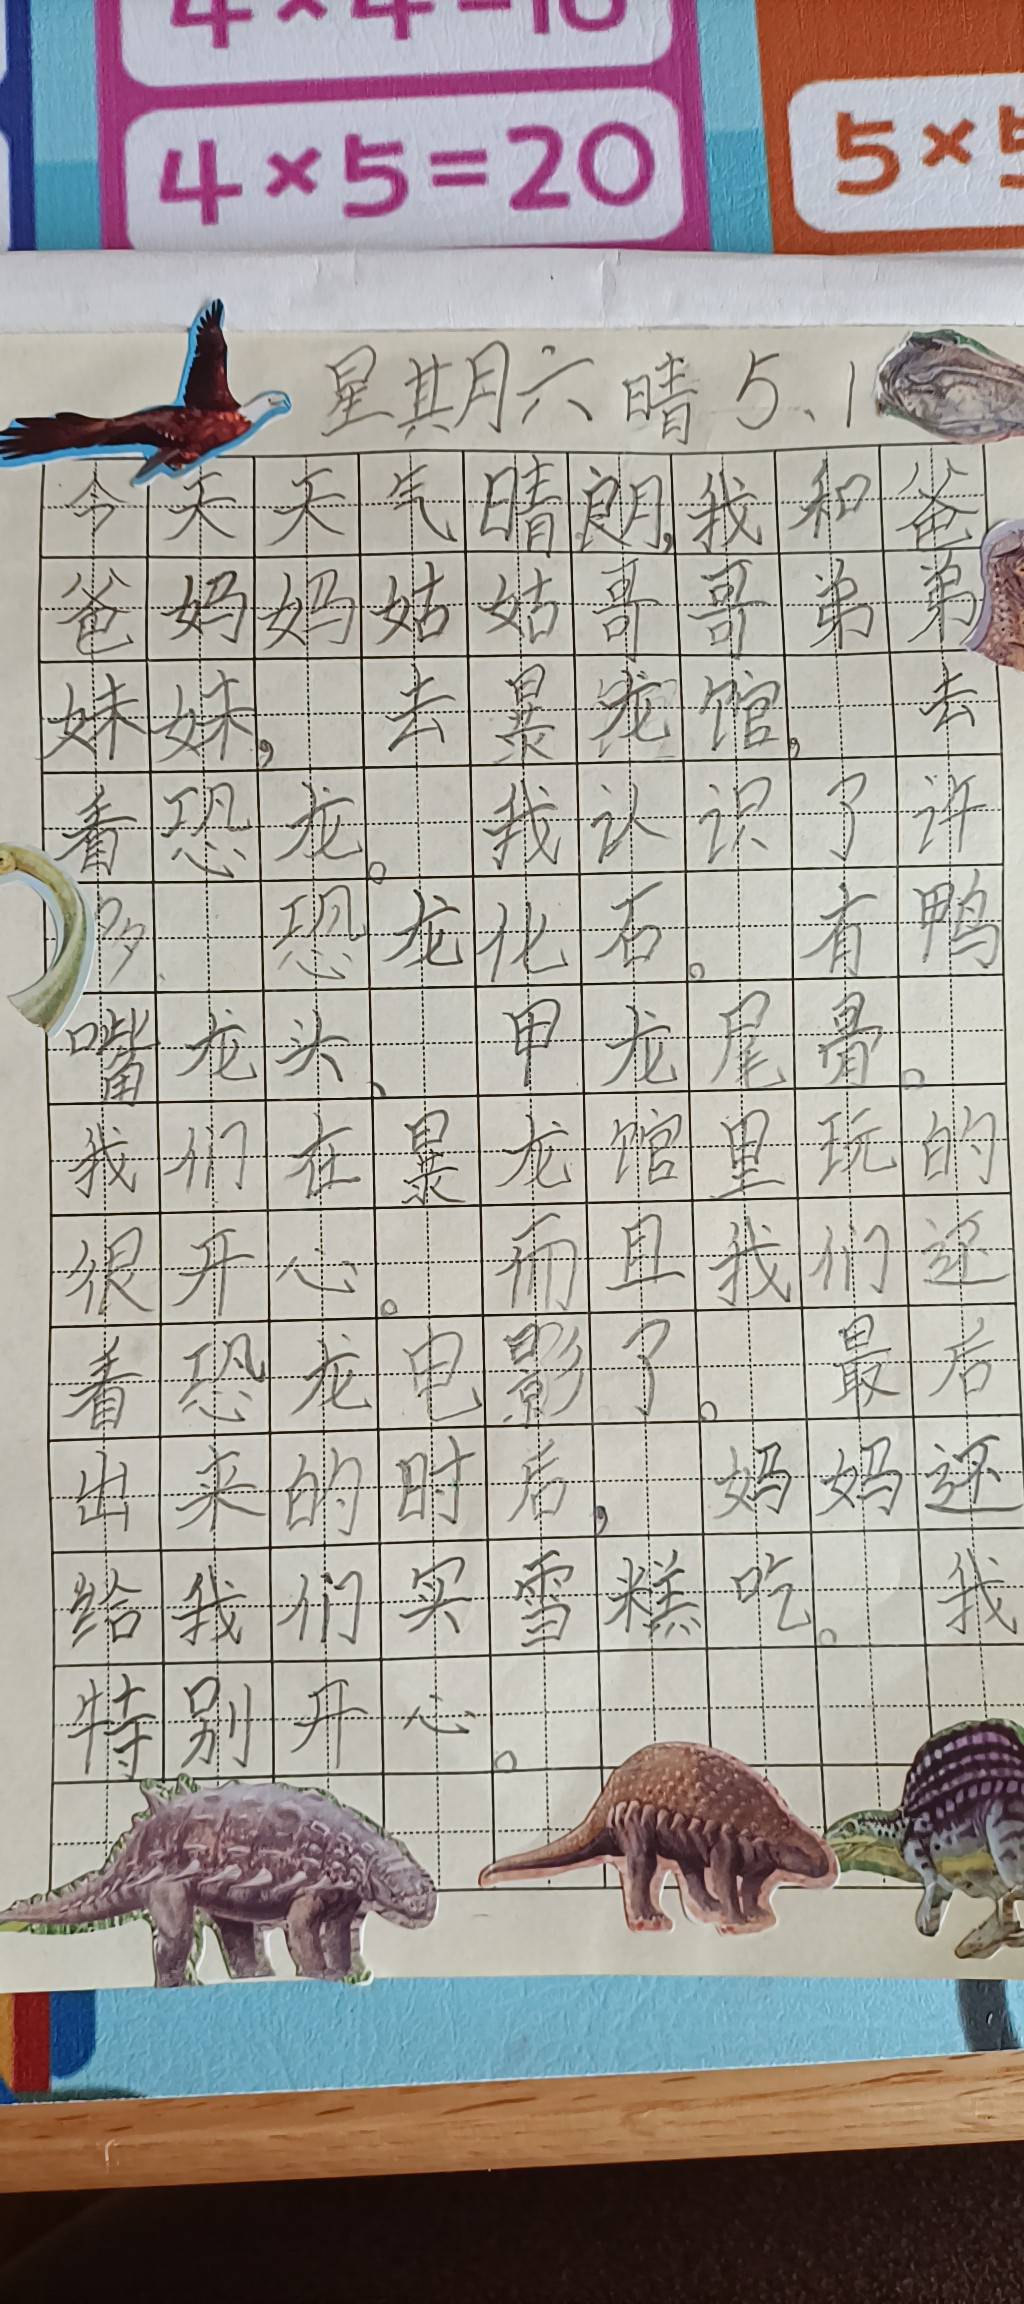 4×4=16
4×5=20
5×5
星期六 晴 5、1
今天天气晴朗,我和爸
爸妈妈姑姑哥哥弟弟
妹妹,去暴龙馆,去
看恐龙。我认识了许
多 恐龙化石。有鸭
嘴龙头、甲龙尾骨。
我们在暴龙馆里玩的
很开心。而且我们还
看恐龙电影了。最后
出来的时后,妈妈还
给我们买雪糕吃。我
特别开心。